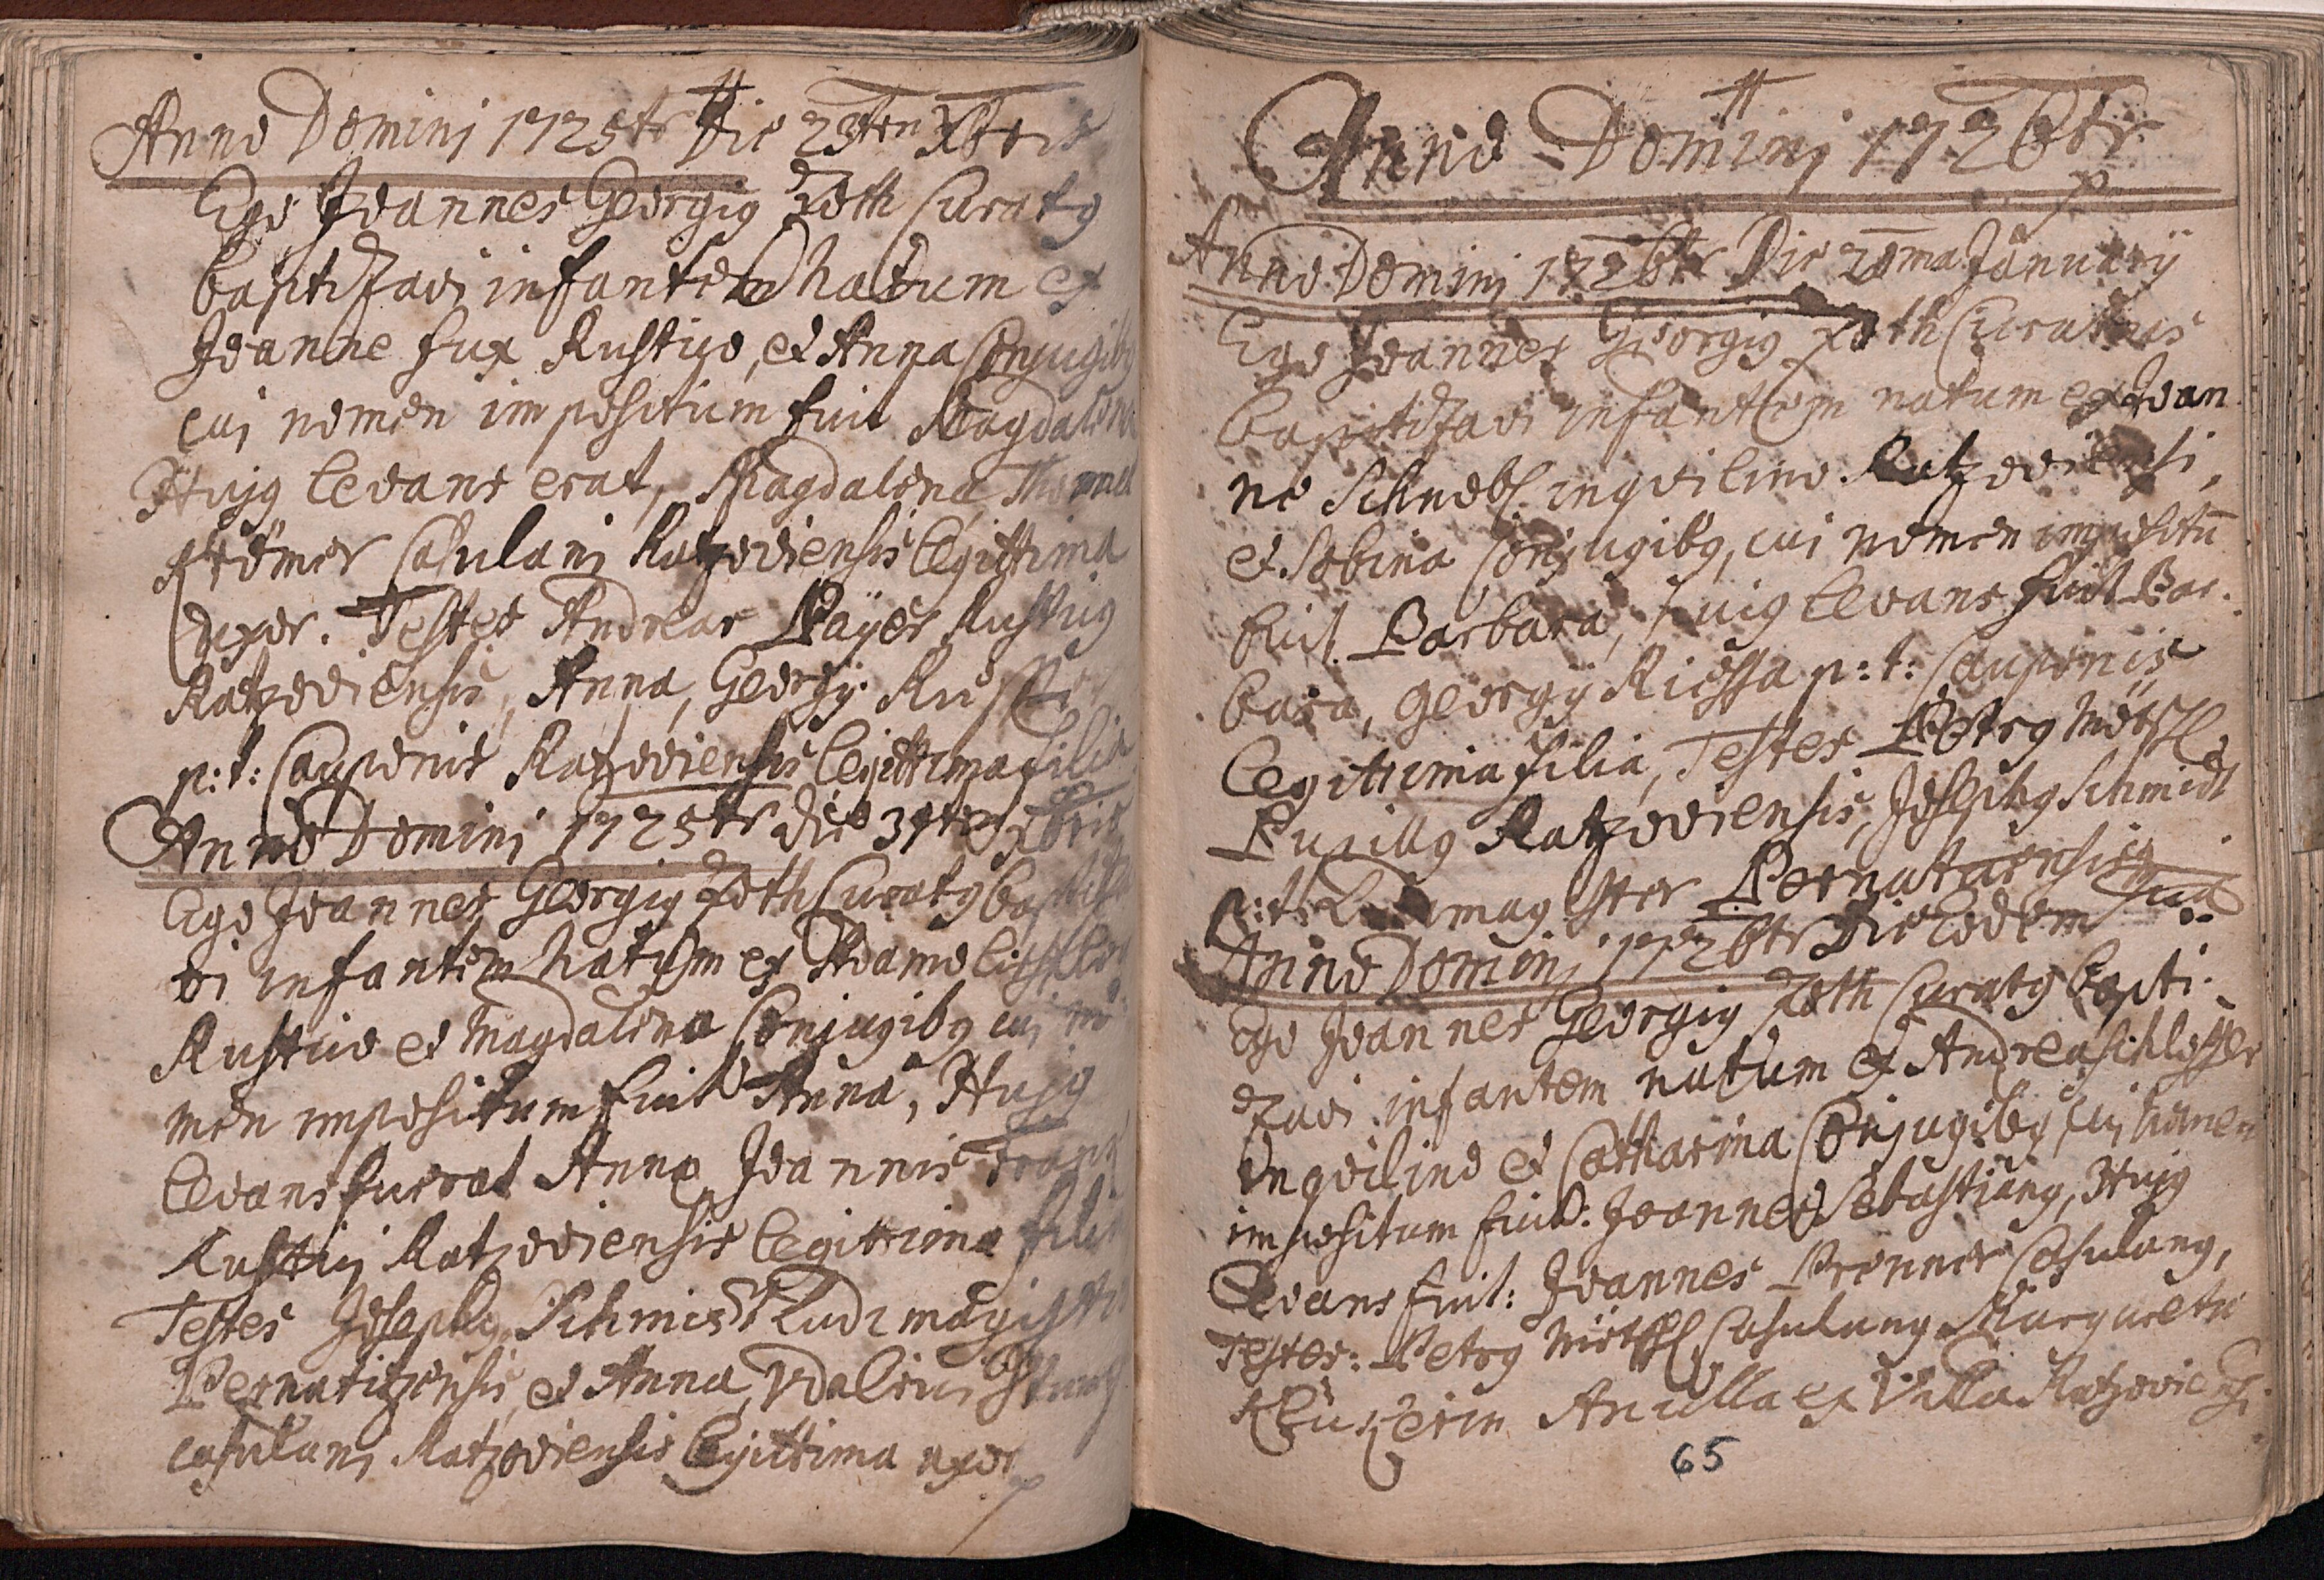 Anno Dominj 1725te Die 23ten Xbris
Ego Joannes Georgig Zoth Curatg
baptizavi infantem natum ex
Joanne Fux Rustico, et Anna Conjugibg
cuj nomen impositum fuit Magdalena
Hujg levans erat, Magdalena, Thomae
Casulanj Ratzoviensis legittima
uxor. Testes Andreas Payer Rusticg
Ratzoviensis, Anna, Georgij
p: t: Cauponis Ratzoviensis legittima filia
Anno Dominj 1725te die Xbris
Ego Joannes Georgig Zoth Curatg baptiza
vi infantem natum ex Adamo
Rustico et Magdalena Conjugibg cuj no
men impositum fuit Anna, Hujg
levans fuerat Anna Joannis
Rusticj Ratzoviensis legittima filia
Testes Josephg Schmidt Ludi magister
Pernatizensis, et Anna, Vdalricj
casulanj Ratzoviensis legittima uxor
Anno Dominj 1726te
Anno Dominj 1726te Die 20ma Januarij
Ego Joannes Georgig Zoth Curatus
baptizavi infantem natum ex Joan
ne Schnebl inqvilino Ratzoviensi,
et Sabina Conjugibg, cui nomen impositu
fuit Barbara, huig levans fuit Bar
bara, Georgij Riessa p: t: Cauponis
legittima filia, Testes Petrg
Pupillg Ratzoviensis, Josephg Schmidt
p: t: magister
Anno Dominj 1726te Die Eodem
Ego Joannes Georgig Zoth Curatg bapti
zavi infantem natum ex Andrea Schlosser
Inqvilino et Catharina Conjugibg, cuj nomen
impositum fuit: Joannes Sebastiang, Hujg
levans fuit: Joannes Prenner Casulang,
Testes: Petrg Casulang Margaretha
Ancilla ex Villa Ratzoviensi
65